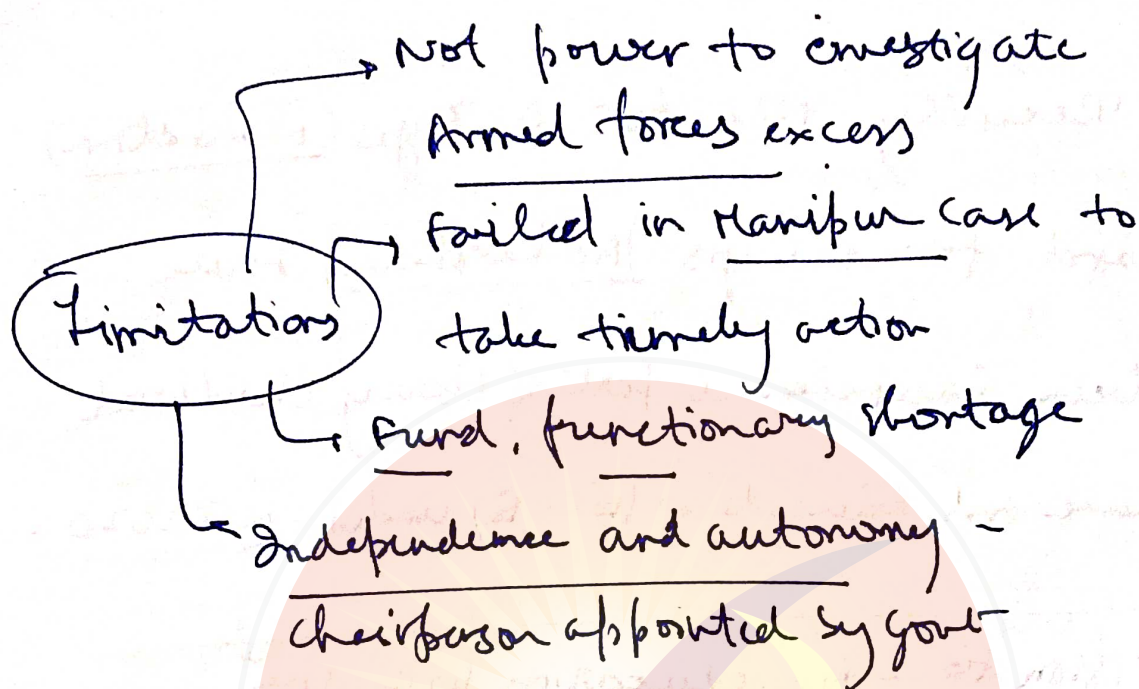 Not power to investigate
Armed forces excess
Limitations
Failed in Manipur case to
take timely action
Fund, functionary shortage
Independence and autonomy -
chairperson appointed by govt